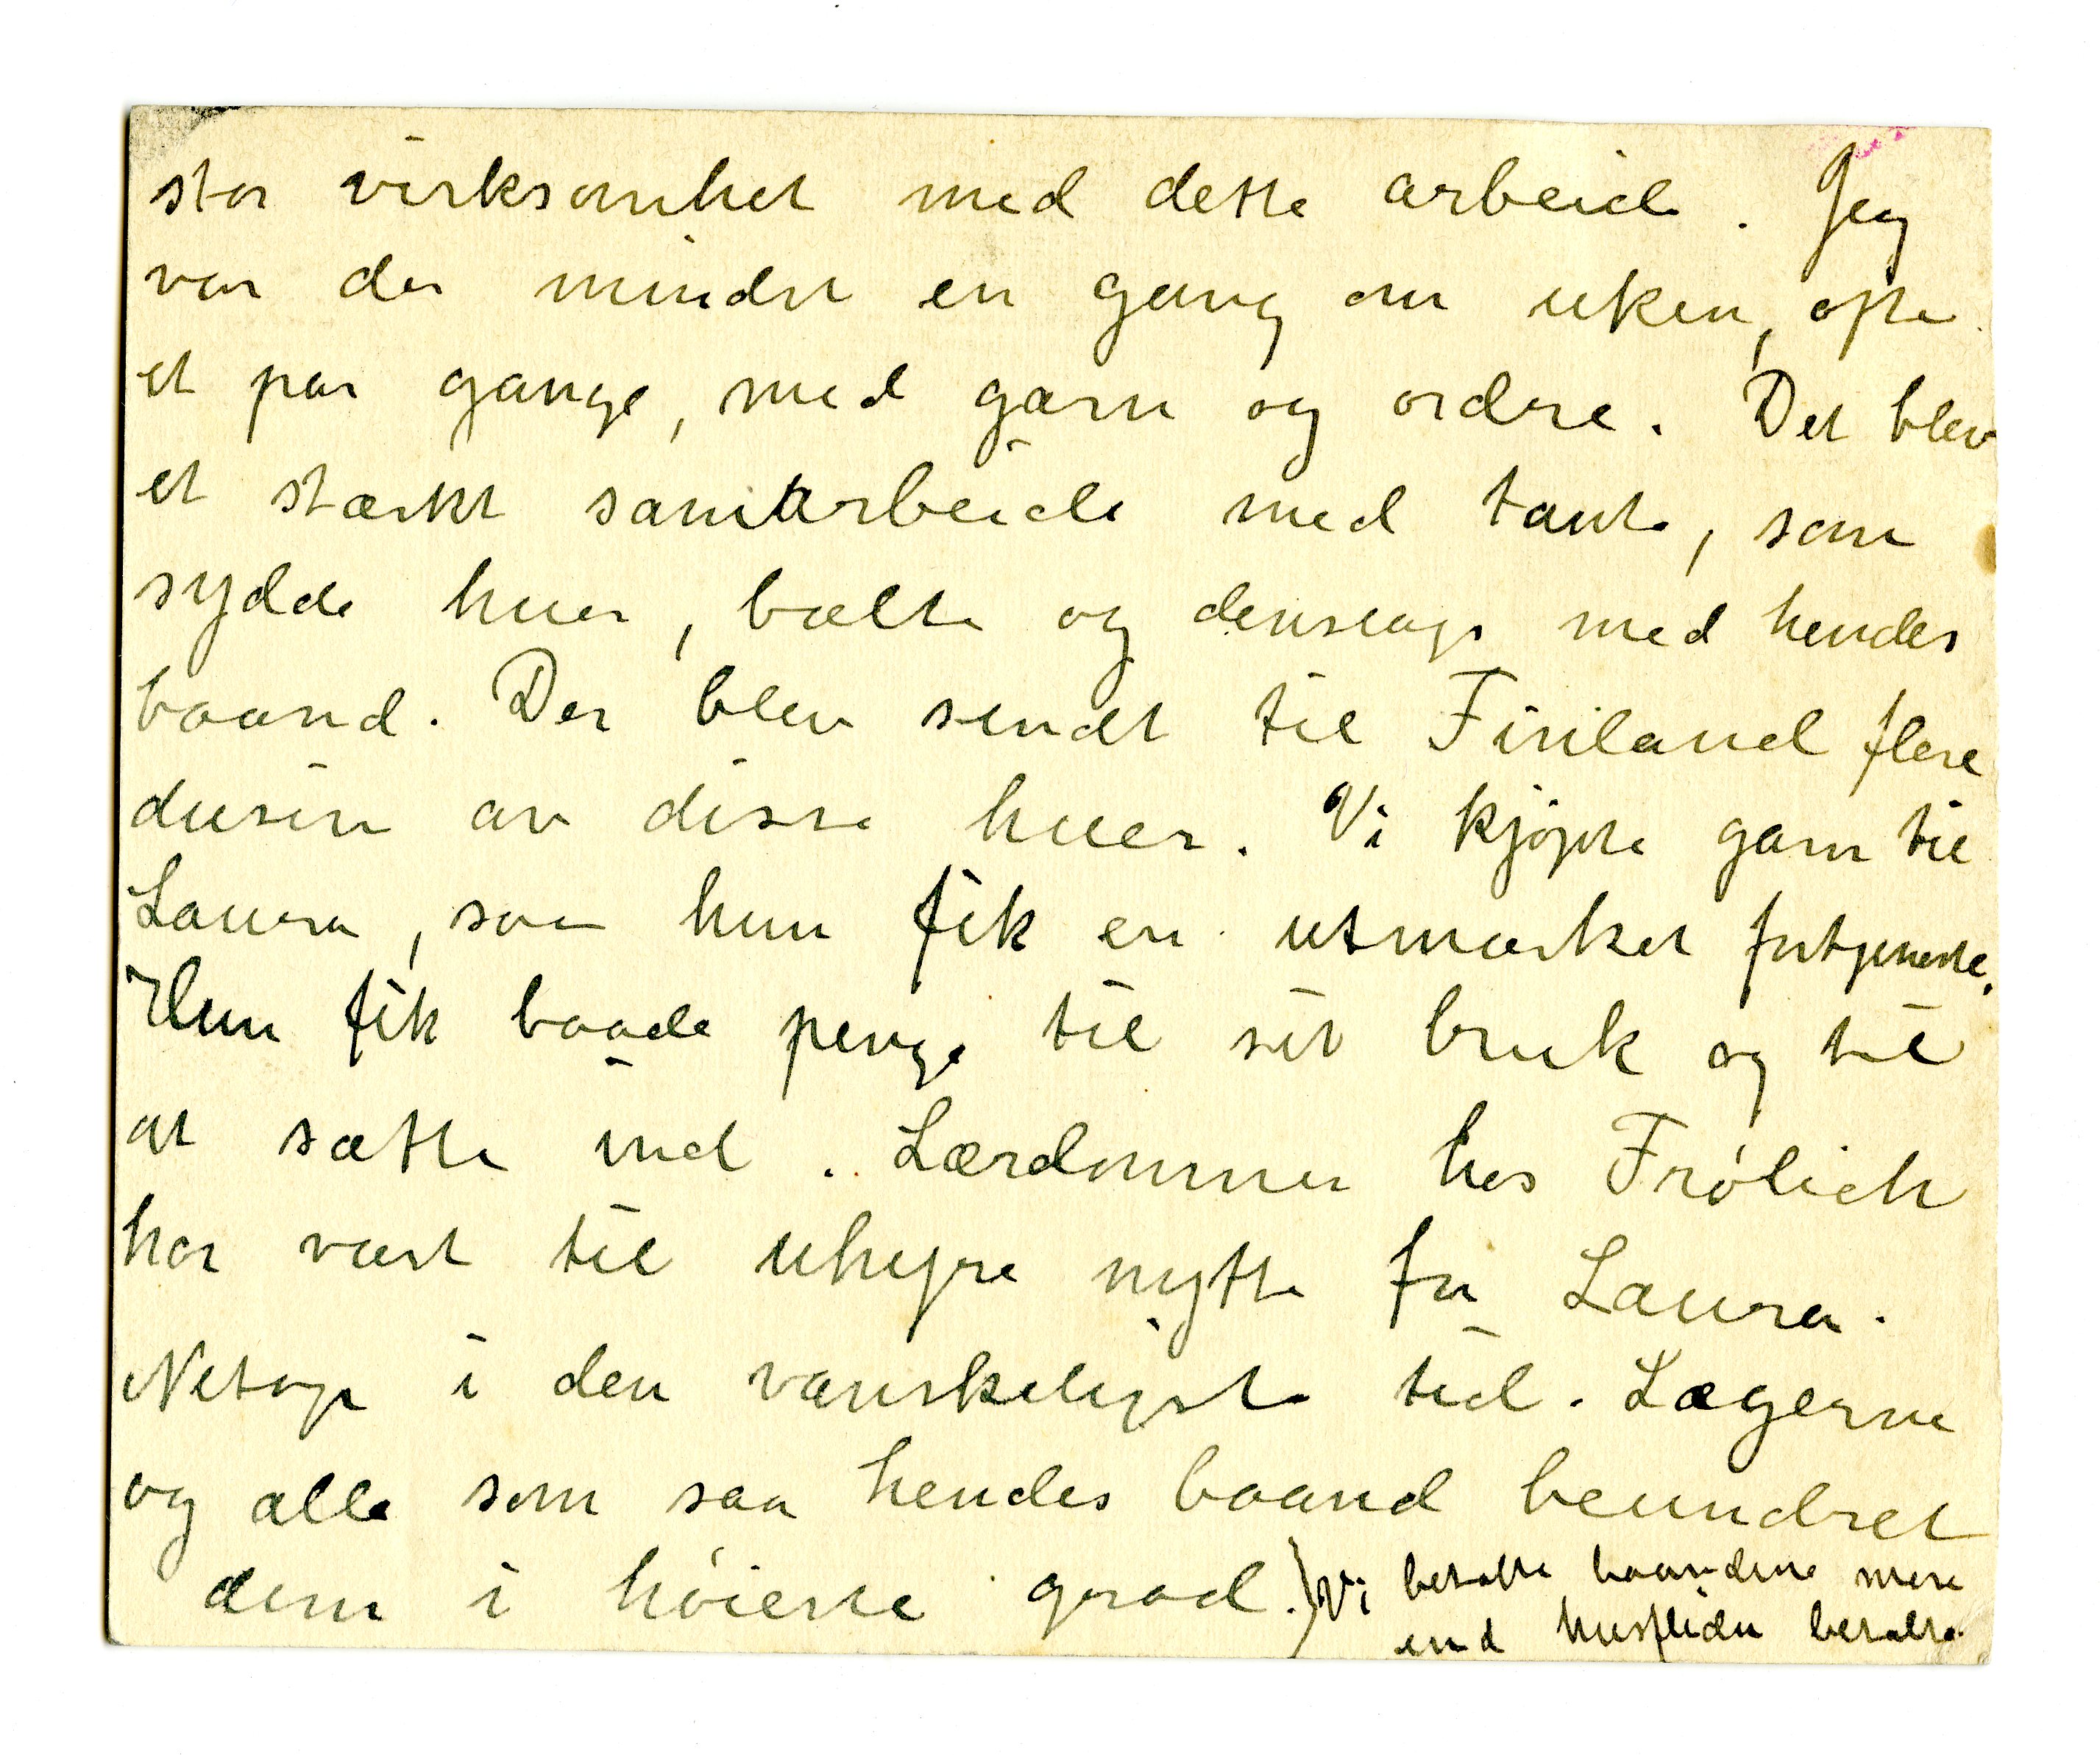 stor virksomhet med dette arbeide. Jeg
var der mindst en gang om uken, ofte
et par gange, med garn og ordre. Det blev
et stærkt samarbeide med tante, som
sydde huer, bælte og denslags med hendes
baand. Der blev sendt til Finland flere
dusin av disse huer. Vi kjøpte garn til
Laura, saa hun fik en utmærket fortjeneste.
Hun fik baade penge til sit bruk og til
at sætte ind. Lærdommen hos Frölich
har vært til uhyre nytte for Laura.
Netop i den vanskeligste tid. Lægerne
og alle som saa hendes baand beundret
dem i høieste grad.) Vi betalte baandene mere
end husfliden betalte.